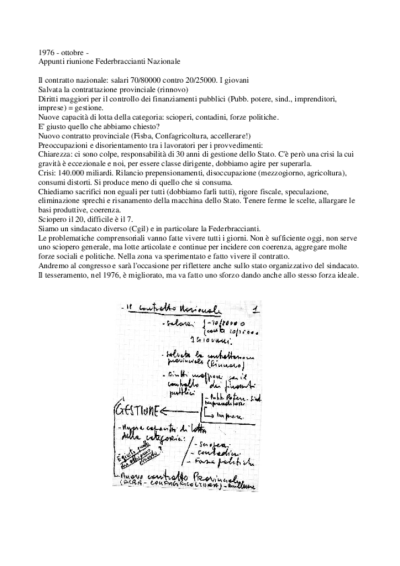 1976 - ottobre -
Appunti riunione Federbraccianti Nazionale
Il contratto nazionale: salari 70/80000 contro 20/25000. I giovani
Salvata la contrattazione provinciale (rinnovo)
Diritti maggiori per il controllo dei finanziamenti pubblici (Pubb. potere, sind., imprenditori,
imprese) = gestione.
Nuove capacità di lotta della categoria: scioperi, contadini, forze politiche.
E' giusto quello che abbiamo chiesto?
Nuovo contratto provinciale (Fisba, Confagricoltura, accellerare!)
Preoccupazioni e disorientamento tra i lavoratori per i provvedimenti:
Chiarezza: ci sono colpe, responsabilità di 30 anni di gestione dello Stato. C'è però una crisi la cui
gravità è eccezionale e noi, per essere classe dirigente, dobbiamo agire per superarla.
Crisi: 140.000 miliardi. Rilancio prepensionamenti, disoccupazione (mezzogiorno, agricoltura),
consumi distorti. Si produce meno di quello che si consuma.
Chiediamo sacrifici non eguali per tutti (dobbiamo farli tutti), rigore fiscale, speculazione,
eliminazione sprechi e risanamento della macchina dello Stato. Tenere ferme le scelte, allargare le
basi produttive, coerenza.
Sciopero il 20, difficile è il 7.
Siamo un sindacato diverso (Cgil) e in particolare la Federbraccianti.
Le problematiche comprensoriali vanno fatte vivere tutti i giorni. Non è sufficiente oggi, non serve
uno sciopero generale, ma lotte articolate e continue per incidere con coerenza, aggregare molte
forze sociali e politiche. Nella zona va sperimentato e fatto vivere il contratto.
Andremo al congresso e sarà l'occasione per riflettere anche sullo stato organizzativo del sindacato.
Il tesseramento, nel 1976, è migliorato, ma va fatto uno sforzo dando anche allo stesso forza ideale.
- Il contratto Nazionale 1
- Salari
I Giovani
- Salvata la contrattazione
provinciale (Rinnovo)
- Diritti maggiori per il
controllo dei
pubblici
- Pubb. Potere - Sind.
imprenditori
Imprese
GESTIONE
- Nuove capacità di lotta
della categoria:
- Scioperi
- contadini
- Forze politiche
- Nuovo contratto Provinciale